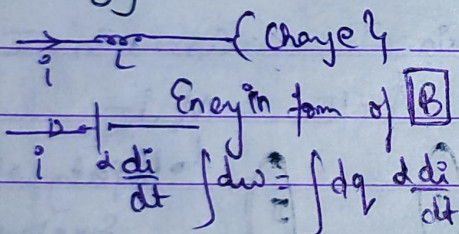 i L { Charge }
Enery in form of B
i L di/dt ∫dw = ∫dq L di/dt